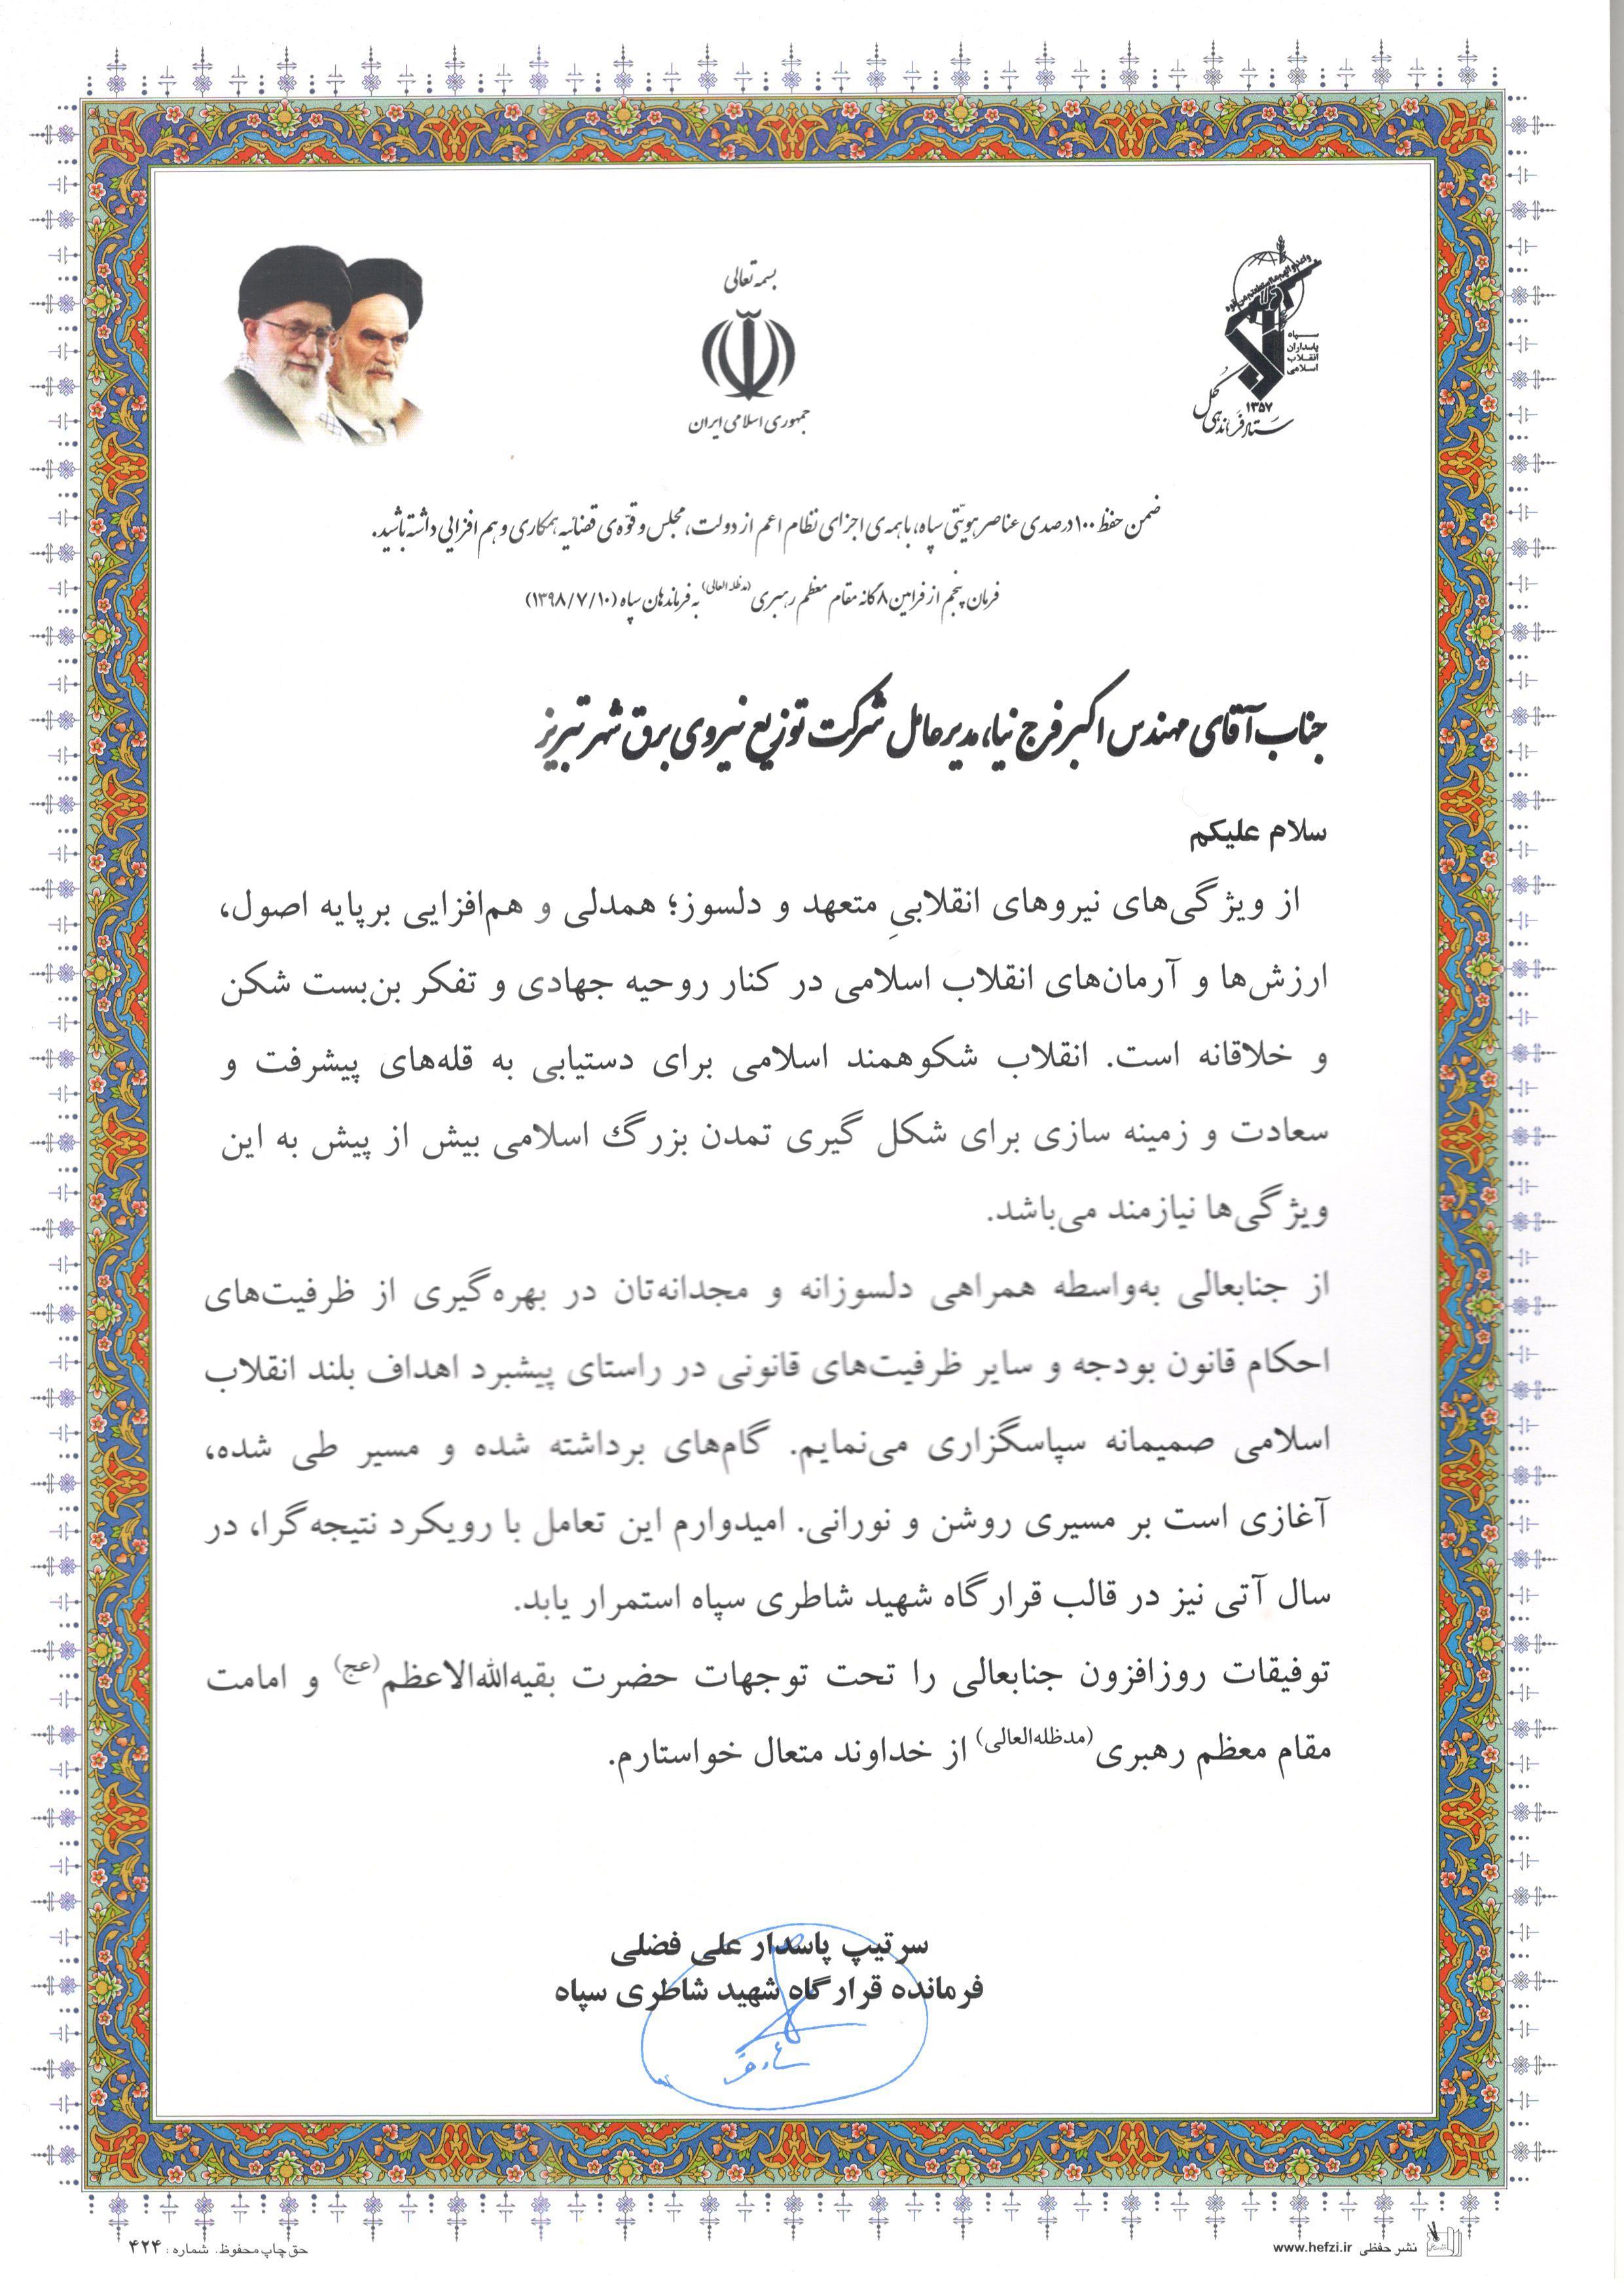 بسمه تعالی
جمهوری اسلامی ایران
سپاه
پاسداران
انقلاب
اسلامی
۱۳۵۷
ستاد فرماندهی کل
ضمن حفظ ۱۰۰ درصدی عناصر هویّتی سپاه، با همه‌ی اجزای نظام اعم از دولت، مجلس و قوّه‌ی قضائیه همکاری و هم افزایی داشته باشید.
فرمان پنجم از فرامین ۸ گانه مقام معظم رهبری (مدظله العالی) به فرماندهان سپاه (۱۳۹۸/۷/۱۰)
جناب آقای مهندس اکبر فرج نیا، مدیرعامل شرکت توزیع نیروی برق شهر تبریز
سلام علیکم
از ویژگی‌های نیروهای انقلابیِ متعهد و دلسوز؛ همدلی و هم‌افزایی برپایه اصول،
ارزش‌ها و آرمان‌های انقلاب اسلامی در کنار روحیه جهادی و تفکر بن‌بست شکن
و خلاقانه است. انقلاب شکوهمند اسلامی برای دستیابی به قله‌های پیشرفت و
سعادت و زمینه سازی برای شکل گیری تمدن بزرگ اسلامی بیش از پیش به این
ویژگی‌ها نیازمند می‌باشد.
از جنابعالی به‌واسطه همراهی دلسوزانه و مجدانه‌تان در بهره‌گیری از ظرفیت‌های
احکام قانون بودجه و سایر ظرفیت‌های قانونی در راستای پیشبرد اهداف بلند انقلاب
اسلامی صمیمانه سپاسگزاری می‌نمایم. گام‌های برداشته شده و مسیر طی شده،
آغازی است بر مسیری روشن و نورانی. امیدوارم این تعامل با رویکرد نتیجه‌گرا، در
سال آتی نیز در قالب قرارگاه شهید شاطری سپاه استمرار یابد.
توفیقات روزافزون جنابعالی را تحت توجهات حضرت بقیه‌الله‌الاعظم(عج) و امامت
مقام معظم رهبری(مدظله‌العالی) از خداوند متعال خواستارم.
سرتیپ پاسدار علی فضلی
فرمانده قرارگاه شهید شاطری سپاه
نشر حفظی www.hefzi.ir
حق چاپ محفوظ. شماره: ۴۲۴